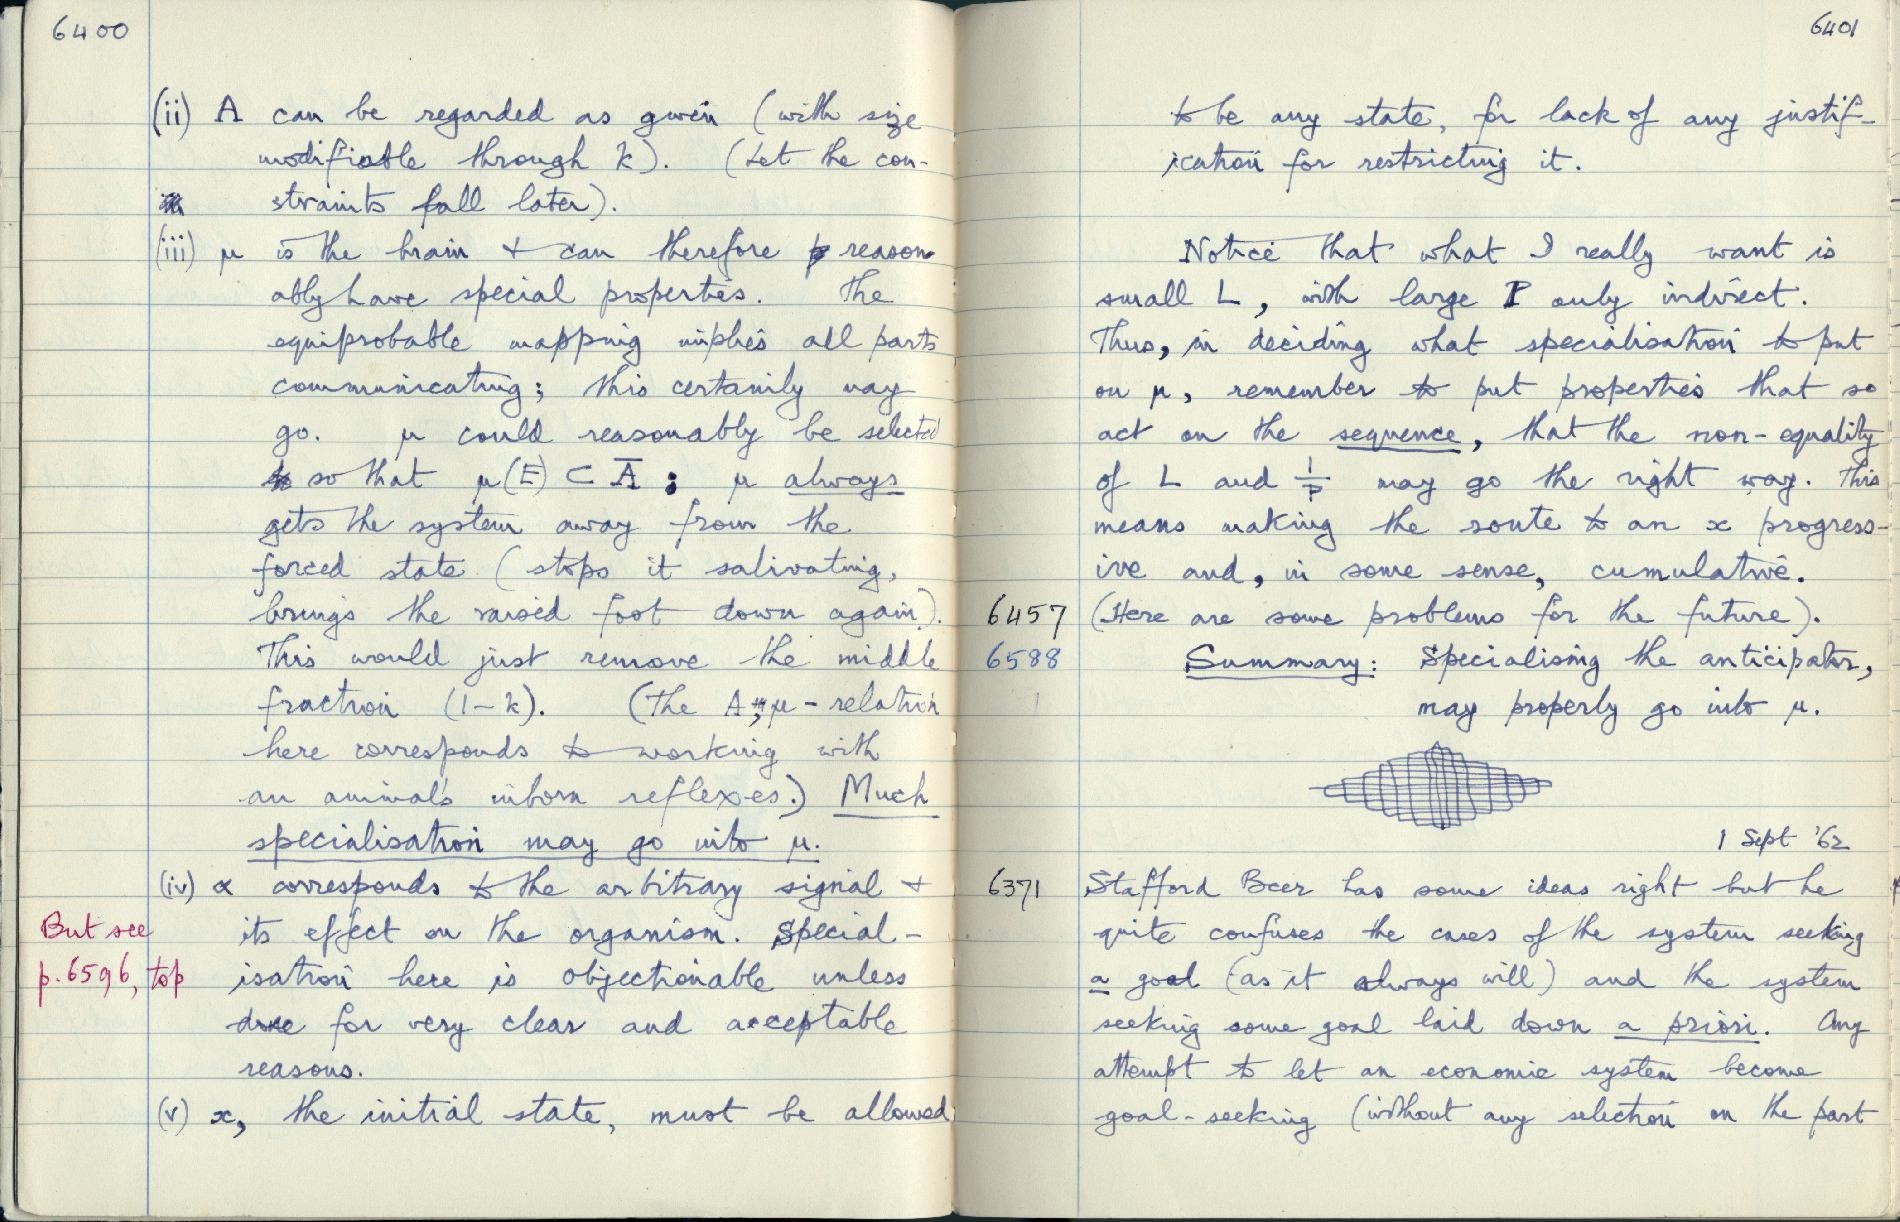 6400
(ii) A can be regarded as given (with size
modifiable through k). (Let the con-
straints fall later).
(iii) μ is the brain + can therefore reason
ably have special properties. The
equiprobable mapping implies all parts
communicating; this certainly may
go. μ could reasonably be selected
so that μ(E) ⊂ A̅; μ always
gets the system away from the
forced state (stops it salivating,
brings the raised foot down again).
This would just remove the middle
fraction (1-k). (The A, μ-relation
here corresponds to working with
an animal's inborn reflexes.) Much
specialisation may go into μ.
(iv) α corresponds to the arbitrary signal +
its effect on the organism. Special-
But see
p.6596, top
isation here is objectionable unless
done for very clear and acceptable
reasons.
(v) x, the initial state, must be allowed
6401
to be any state, for lack of any justif-
ication for restricting it.
Notice that what I really want is
small L, with large P only indirect.
Thus, in deciding what specialisation to put
on μ, remember to put properties that so
act on the sequence, that the non-equality
of L and 1/P may go the right way. This
means making the route to an x progress-
ive and, in some sense, cumulative.
6457 (Here are some problems for the future).
6588 Summary: Specialising the anticipator,
may properly go into μ.
1 Sept '62
6371 Stafford Beer has some ideas right but he
quite confuses the cases of the system seeking
a goal (as it always will) and the system
seeking some goal laid down a priori. Any
attempt to let an economic system become
goal-seeking (without any selection on the part